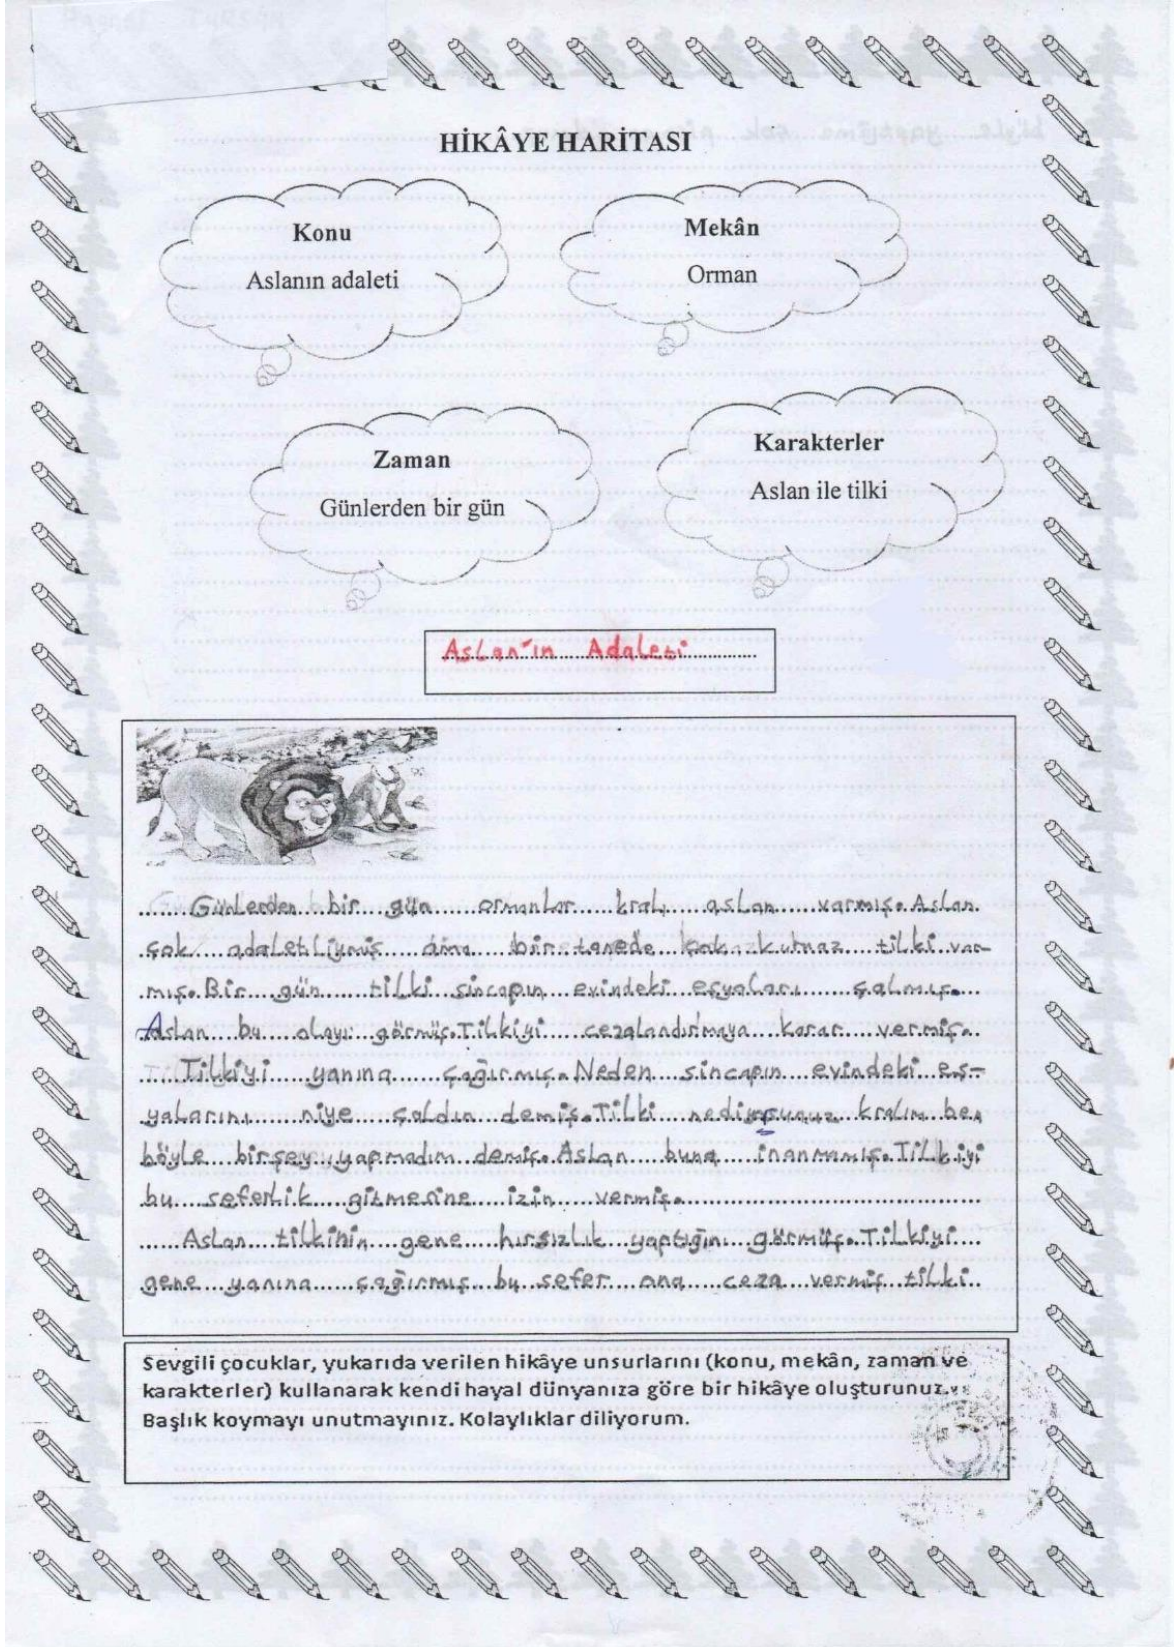 HİKÂYE HARİTASI
Konu
Aslanın adaleti
Mekân
Orman
Zaman
Günlerden bir gün
Karakterler
Aslan ile tilki
Aslan'ın Adaleti
Günlerden bir gün ormanlar kralı aslan varmış. Aslan
çok adaletliymiş ama bir tanede çok kurnaz tilki var-
mış. Bir gün tilki sincapın evindeki eşyaları çalmış.
Aslan bu olayı görmüş. Tilkiyi cezalandırmaya karar vermiş.
Tilkiyi yanına çağırmış. Neden sincapın evindeki eş-
yalarını niye çaldın demiş. Tilki nediyorsunuz kralım ben
böyle birşey yapmadım demiş. Aslan buna inanmamış. Tilkiyi
bu seferlik gitmesine izin vermiş.
Aslan tilkinin gene hırsızlık yaptığını görmüş. Tilkiyi
gene yanına çağırmış bu sefer ona ceza vermiş tilki
Sevgili çocuklar, yukarıda verilen hikâye unsurlarını (konu, mekân, zaman ve
karakterler) kullanarak kendi hayal dünyanıza göre bir hikâye oluşturunuz.
Başlık koymayı unutmayınız. Kolaylıklar diliyorum.